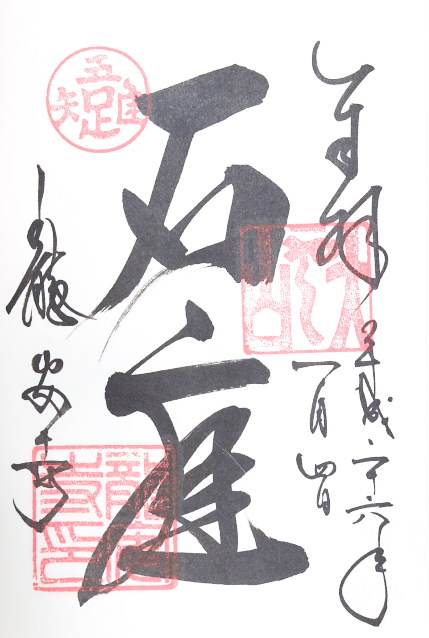 奉拝
平成二十六年
一月四日
石庭
龍安寺
吾唯足知
龍安寺印